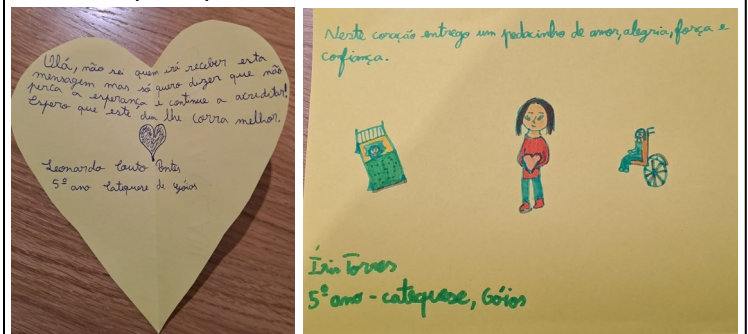 Olá, não sei quem irá receber esta
mensagem mas só quero dizer que não
perca a esperança e continue a acreditar!
Espero que este dia lhe corra melhor.
Leonardo Couto Pontes
5º ano Catequese de Góios
Neste coração entrego um pedacinho de amor, alegria, força e
confiança.
Íris Torres
5º ano - catequese, Góios